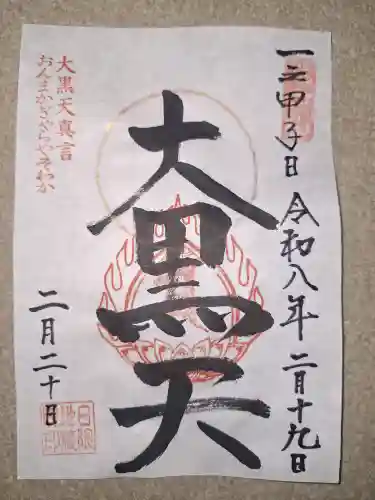 一之甲子日 令和八年 二月十九日
大黒天
大黒天真言
おんまかぎゃらやそわか
二月二十日